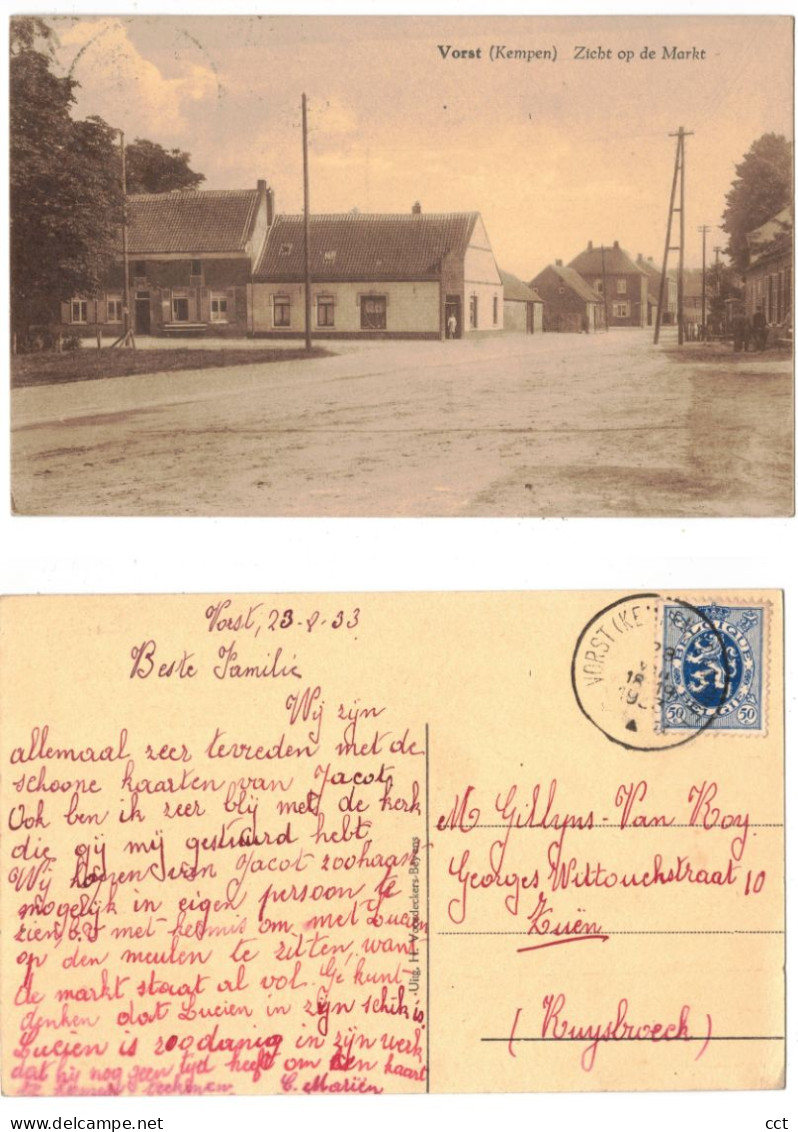 Vorst (Kempen) Zicht op de Markt
Vorst, 23-8-33
Beste Familie
Wij zijn
allemaal zeer tevreden met de
schoone kaarten van Jacot
Ook ben ik zeer blij met de kerk
die gij mij gestuurd hebt
Wij hopen Jacot zoohaast
mogelijk in eigen persoon te
zien, b.v met kermis om met Lucien
op den meulen te zitten, want
de markt staat al vol. Ge kunt
denken dat Lucien in zijn schik is.
Lucien is zoodanig in zijn werk
dat hij nog geen tijd heeft om een kaart
te teekenen C. Mariën
Uitg. H. Voordeckers-Beyens
VORST (KEMPEN)
BELGIQUE
50 BELGIE 50
M Gillyns-Van Roy.
Georges Wittouckstraat 10
Zuën
(Ruysbroeck)
cct